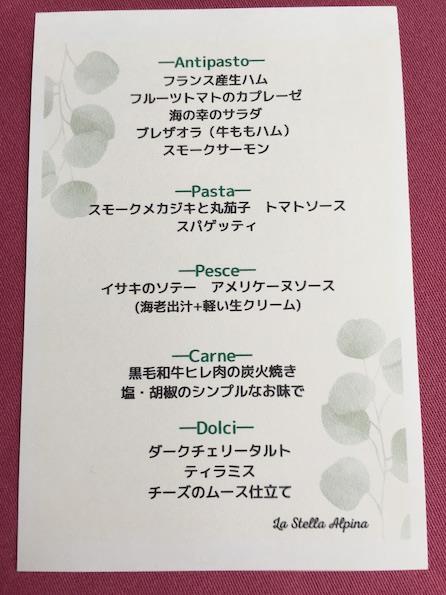 —Antipasto—
フランス産生ハム
フルーツトマトのカプレーゼ
海の幸のサラダ
ブレザオラ（牛ももハム）
スモークサーモン
—Pasta—
スモークメカジキと丸茄子　トマトソース
スパゲッティ
—Pesce—
イサキのソテー　アメリケーヌソース
(海老出汁+軽い生クリーム)
—Carne—
黒毛和牛ヒレ肉の炭火焼き
塩・胡椒のシンプルなお味で
—Dolci—
ダークチェリータルト
ティラミス
チーズのムース仕立て
La Stella Alpina